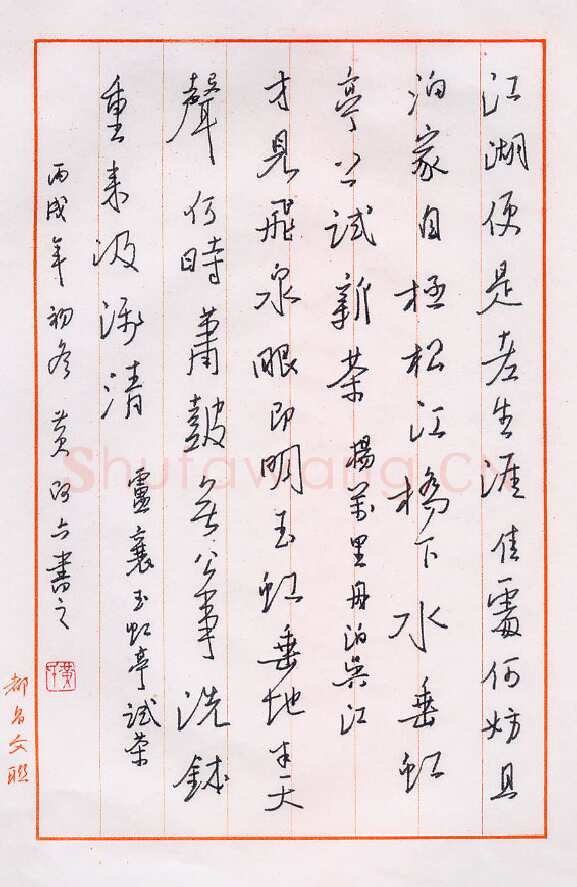 江湖便是老生涯佳處何妨且
泊家自極松江橋下水垂虹
亭上試新茶 楊萬里舟泊吳江
才見飛泉眼即明玉虹垂地半天
聲何時蕭鼓無公事洗鉢
重来汲清 盧襄玉虹亭試茶
丙戌年初冬黄阿六書之
都昌文聯
Shufawang.CN